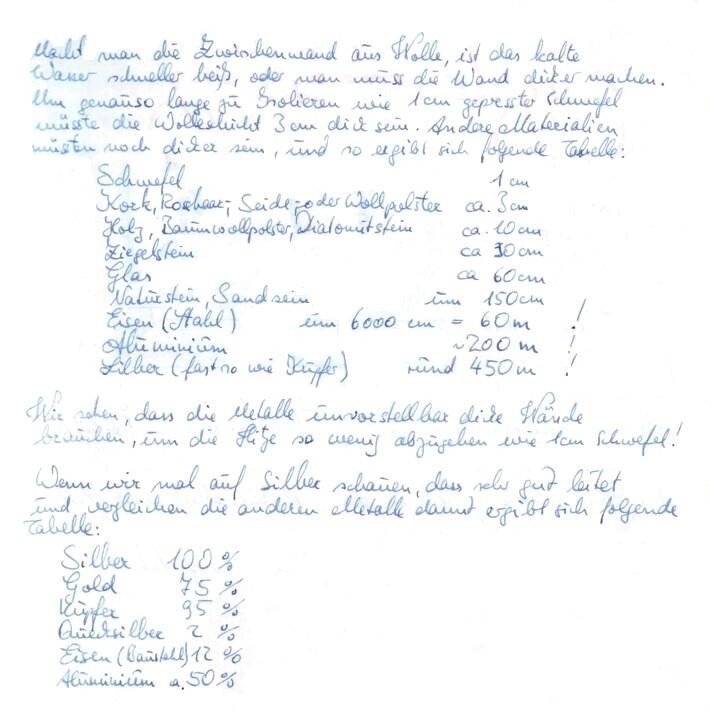 Macht man die Zwischenwand aus Wolle, ist das kalte
Wasser schneller heiß, oder man muss die Wand dicker machen.
Um genauso lange zu Isolieren wie 1cm gepresster Schwefel
müsste die Wollschicht 3cm dick sein. Andere Materialien
müssten noch dicker sein, und so ergibt sich folgende Tabelle:
Schwefel 1cm
Kork, Rosshaar-, Seide- oder Wollpolster ca. 3cm
Holz, Baumwollpolster, Diatomitstein ca. 10cm
Ziegelstein ca 30cm
Glas ca 60cm
Naturstein, Sandsein um 150cm
Eisen (Stahl) um 6000 cm = 60m !
Aluminium ~200 m !
Silber (fast so wie Kupfer) rund 450m !
Wir sehen, dass die Metalle unvorstellbar dicke Wände
brauchen, um die Hitze so wenig abzugeben wie 1cm Schwefel!
Wenn wir mal auf Silber schauen, dass sehr gut leitet
und vergleichen die anderen Metalle damit ergibt sich folgende
Tabelle:
Silber 100%
Gold 75%
Kupfer 95%
Quecksilber 2%
Eisen (Baustahl) 12%
Aluminium a. 50%